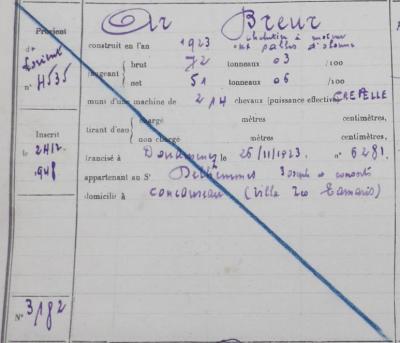 Ar Breur
Provient
de
Lorient
n° H535
construit en l'an 1923 chalutier à moteur
aux pattes d'
jaugeant brut 72 tonneaux 03 /100
net 51 tonneaux 06 /100
muni d'une machine de 214 chevaux (puissance effective) CREPELLE
tirant d'eau chargé mètres centimètres,
non chargé mètres centimètres,
francisé à Douarnenez le 26/11/1923. n° 6281.
appartenant au St Delhemmes Joseph et consorts
domicilié à Concarneau (Ville Les Tamaris)
Inscrit
le 24/12
.948
N° 3182